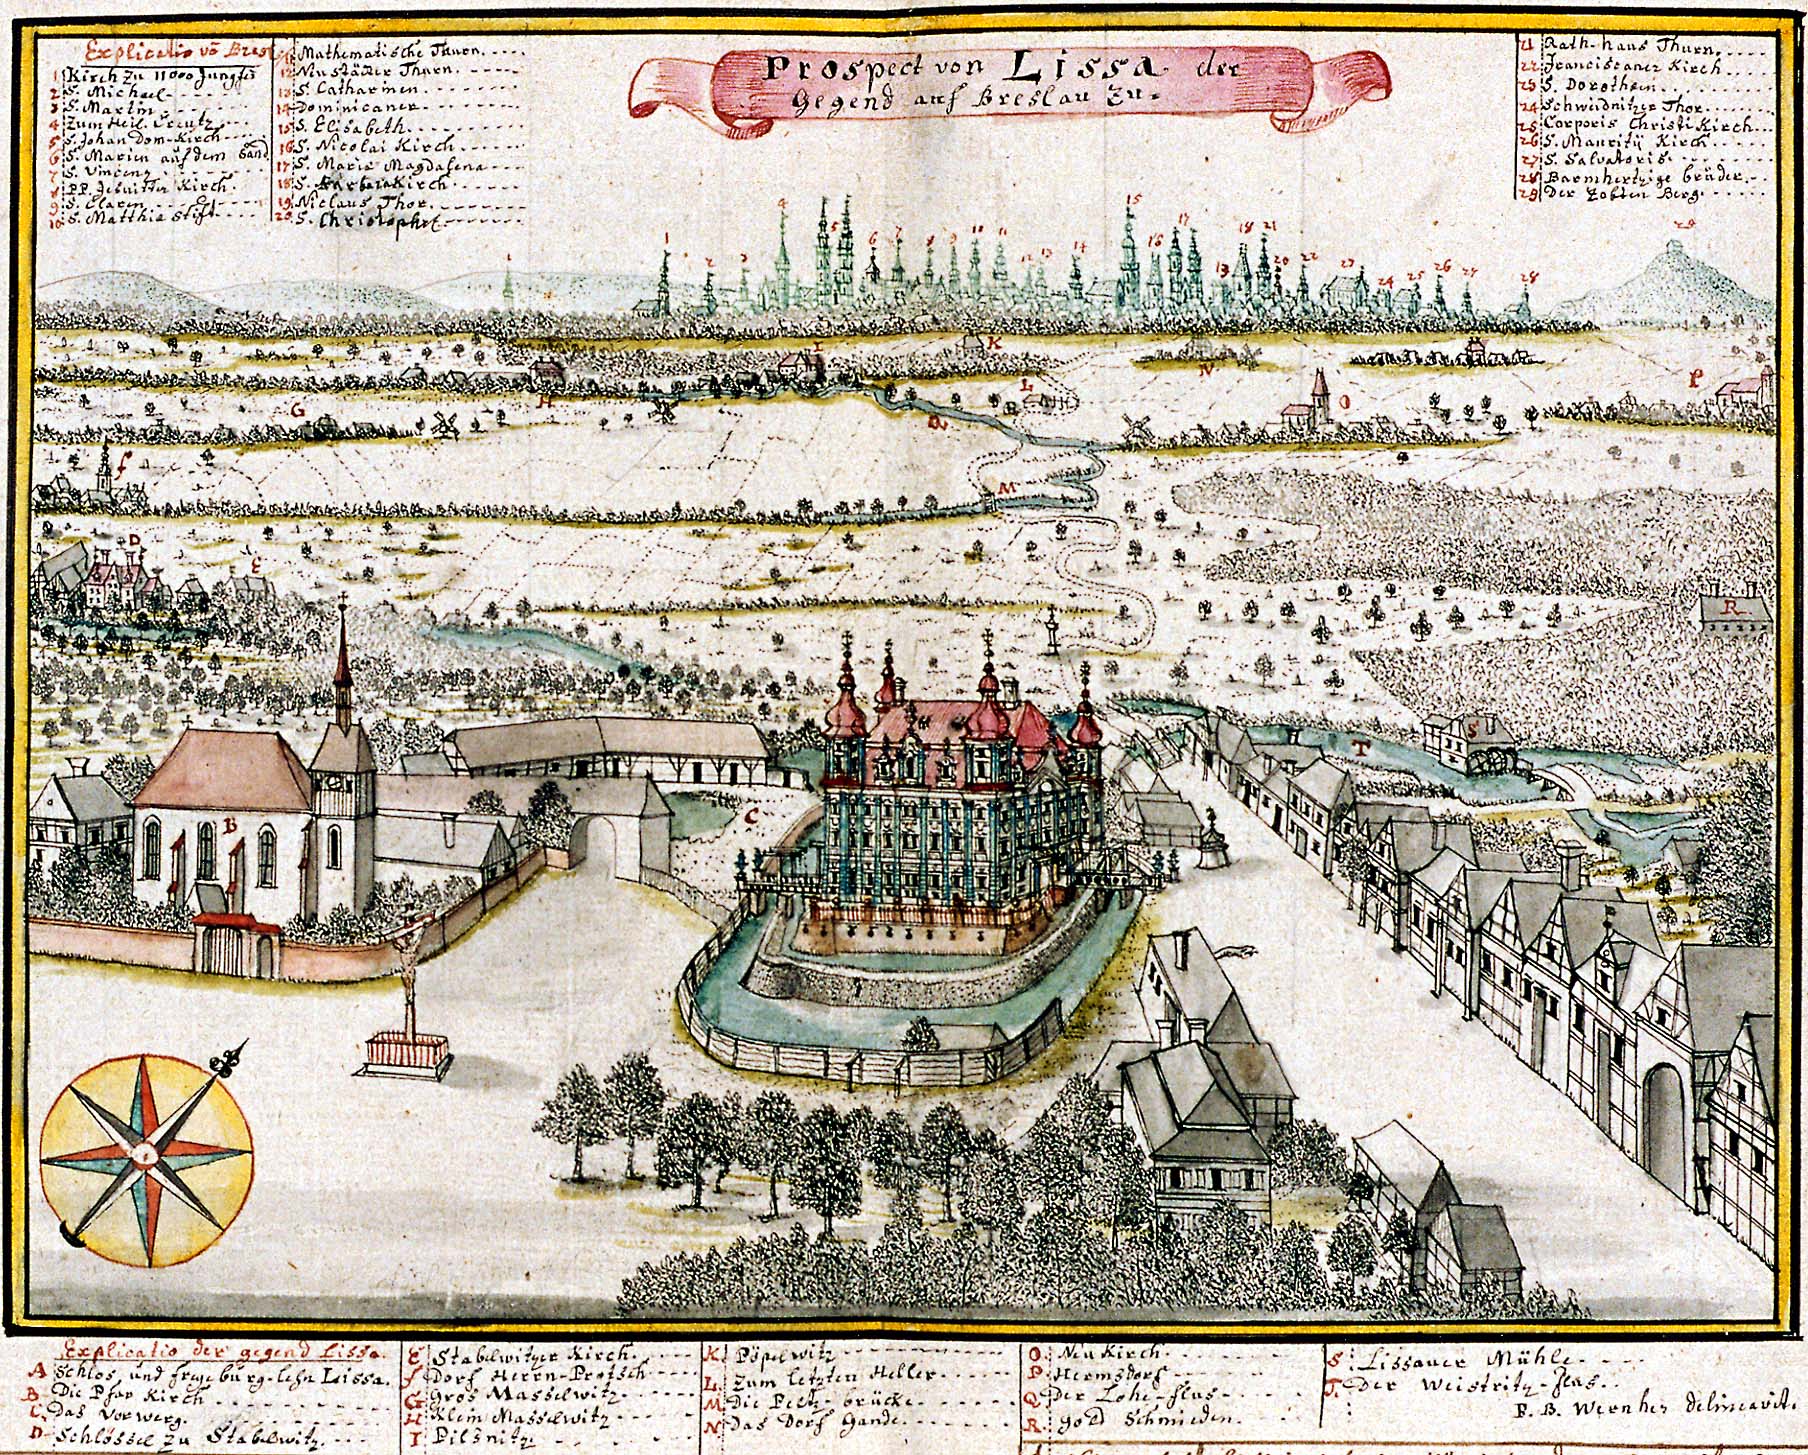 Prospect von Lissa der
gegend auf Breslau zu.
Explicatio vō Bresl
1 Kirch zu 11000 Jungfer
2 S. Michael
3 S. Martin
4 Zum Heil. Creutz
5 S. Johan Dom-Kirch
6 S. Marien auf dem Sand
7 S. Vincenz
8 PP. Jesuitter Kirch.
9 S. Claren
10 S. Matthia Stift
11 Mathematische Thurn.
12 Neustädter Thurn.
13 S. Catharinen
14 Dominicaner
15 S. Elisabeth.
16 S. Nicolai Kirch
17 S. Maria Magdalena
18 S. Barbara Kirch
19 Niclaus Thor.
20 S. Christophel
21 Rath-haus Thurn.
22 Franciscaner Kirch
23 S. Dorothem
24 Schweidnitzer Thor.
25 Corporis Christi Kirch
26 S. Mauritij Kirch
27 S. Salvatoris
28 Barmhertzige brüder.
29 Der Zobten Berg.
Explicatio der gegend Lissa.
A Schlos und freye burg-lehn Lissa.
B Die Pfar Kirch
C. Das Vorwerg.
D. Schlössel zu Stabelwitz.
E Stabelwitzer Kirch.
f Dorf Herrn-Protsch
G Gros Masselwitz
H Klein Masselwitz
I Pilsnitz
K. Pöpelwitz
L. Zum letzten Heller
M Die Peltz-brücke
N Das Dorf Gande.
O. Neu Kirch.
P Hermsdorf
Q Der Lohe-flus
R. gold Schmieden.
S. Lissauer Mühle.
T. Der Weistritz-flus.
F. B. Wernher delineavit.